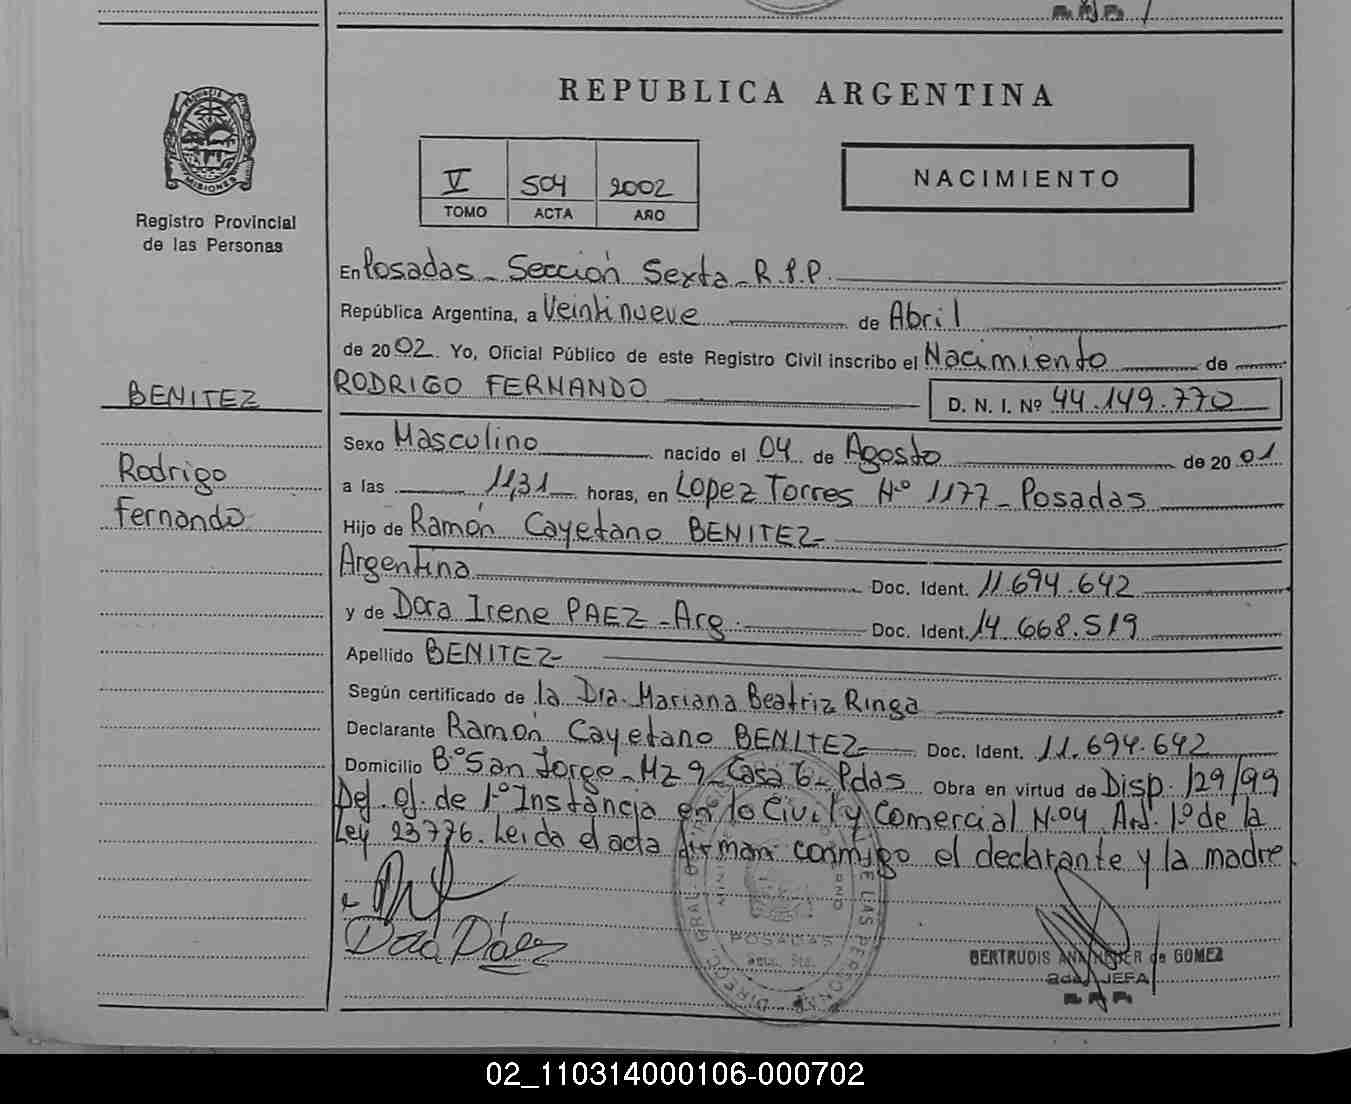 PROVINCIA DE
MISIONES
Registro Provincial
de las Personas
BENITEZ
Rodrigo
Fernando
REPUBLICA ARGENTINA
V 504 2002
TOMO ACTA AÑO
NACIMIENTO
En Posadas - Sección Sexta - R.P.P.
República Argentina, a Veintinueve de Abril
de 2002. Yo, Oficial Público de este Registro Civil inscribo el Nacimiento de
RODRIGO FERNANDO D. N. I. Nº 44.149.770
Sexo Masculino nacido el 04 de Agosto de 2001
a las 11,31 horas, en Lopez Torres Nº 1177 - Posadas
Hijo de Ramón Cayetano BENITEZ
Argentina Doc. Ident. 11.694.642
y de Dora Irene PAEZ - Arg. Doc. Ident. 14.668.519
Apellido BENITEZ
Según certificado de la Dra. Mariana Beatriz Ringa
Declarante Ramón Cayetano BENITEZ Doc. Ident. 11.694.642
Domicilio Bº San Jorge - Mz 9 - Casa 6 - Pdas Obra en virtud de Disp. 129/99
Def. Of. de 1º Instancia en lo Civil y Comercial Nº 04 Art. 1º de la
Ley 23776. Leida el acta firman conmigo el declarante y la madre
POSADAS
DE LAS PERSONAS
GERTRUDIS de GOMEZ
JEFA
02_110314000106-000702